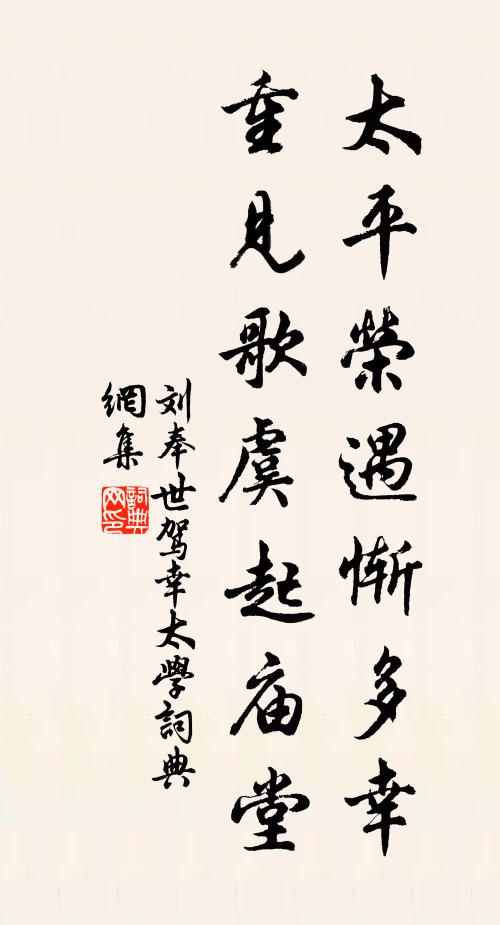 太平榮遇慚多幸
重見歌虞起庙堂
刘奉世驾幸太學詞典
網集
詞典网印